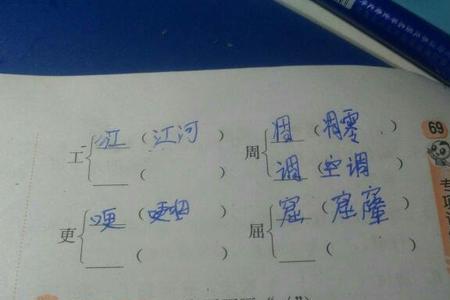 江（江河） 凋（凋零） 69
工 周
（ ） 调（空调）
专项
哽（哽咽） 窟（窟窿）
更 屈
（ ） （ ）